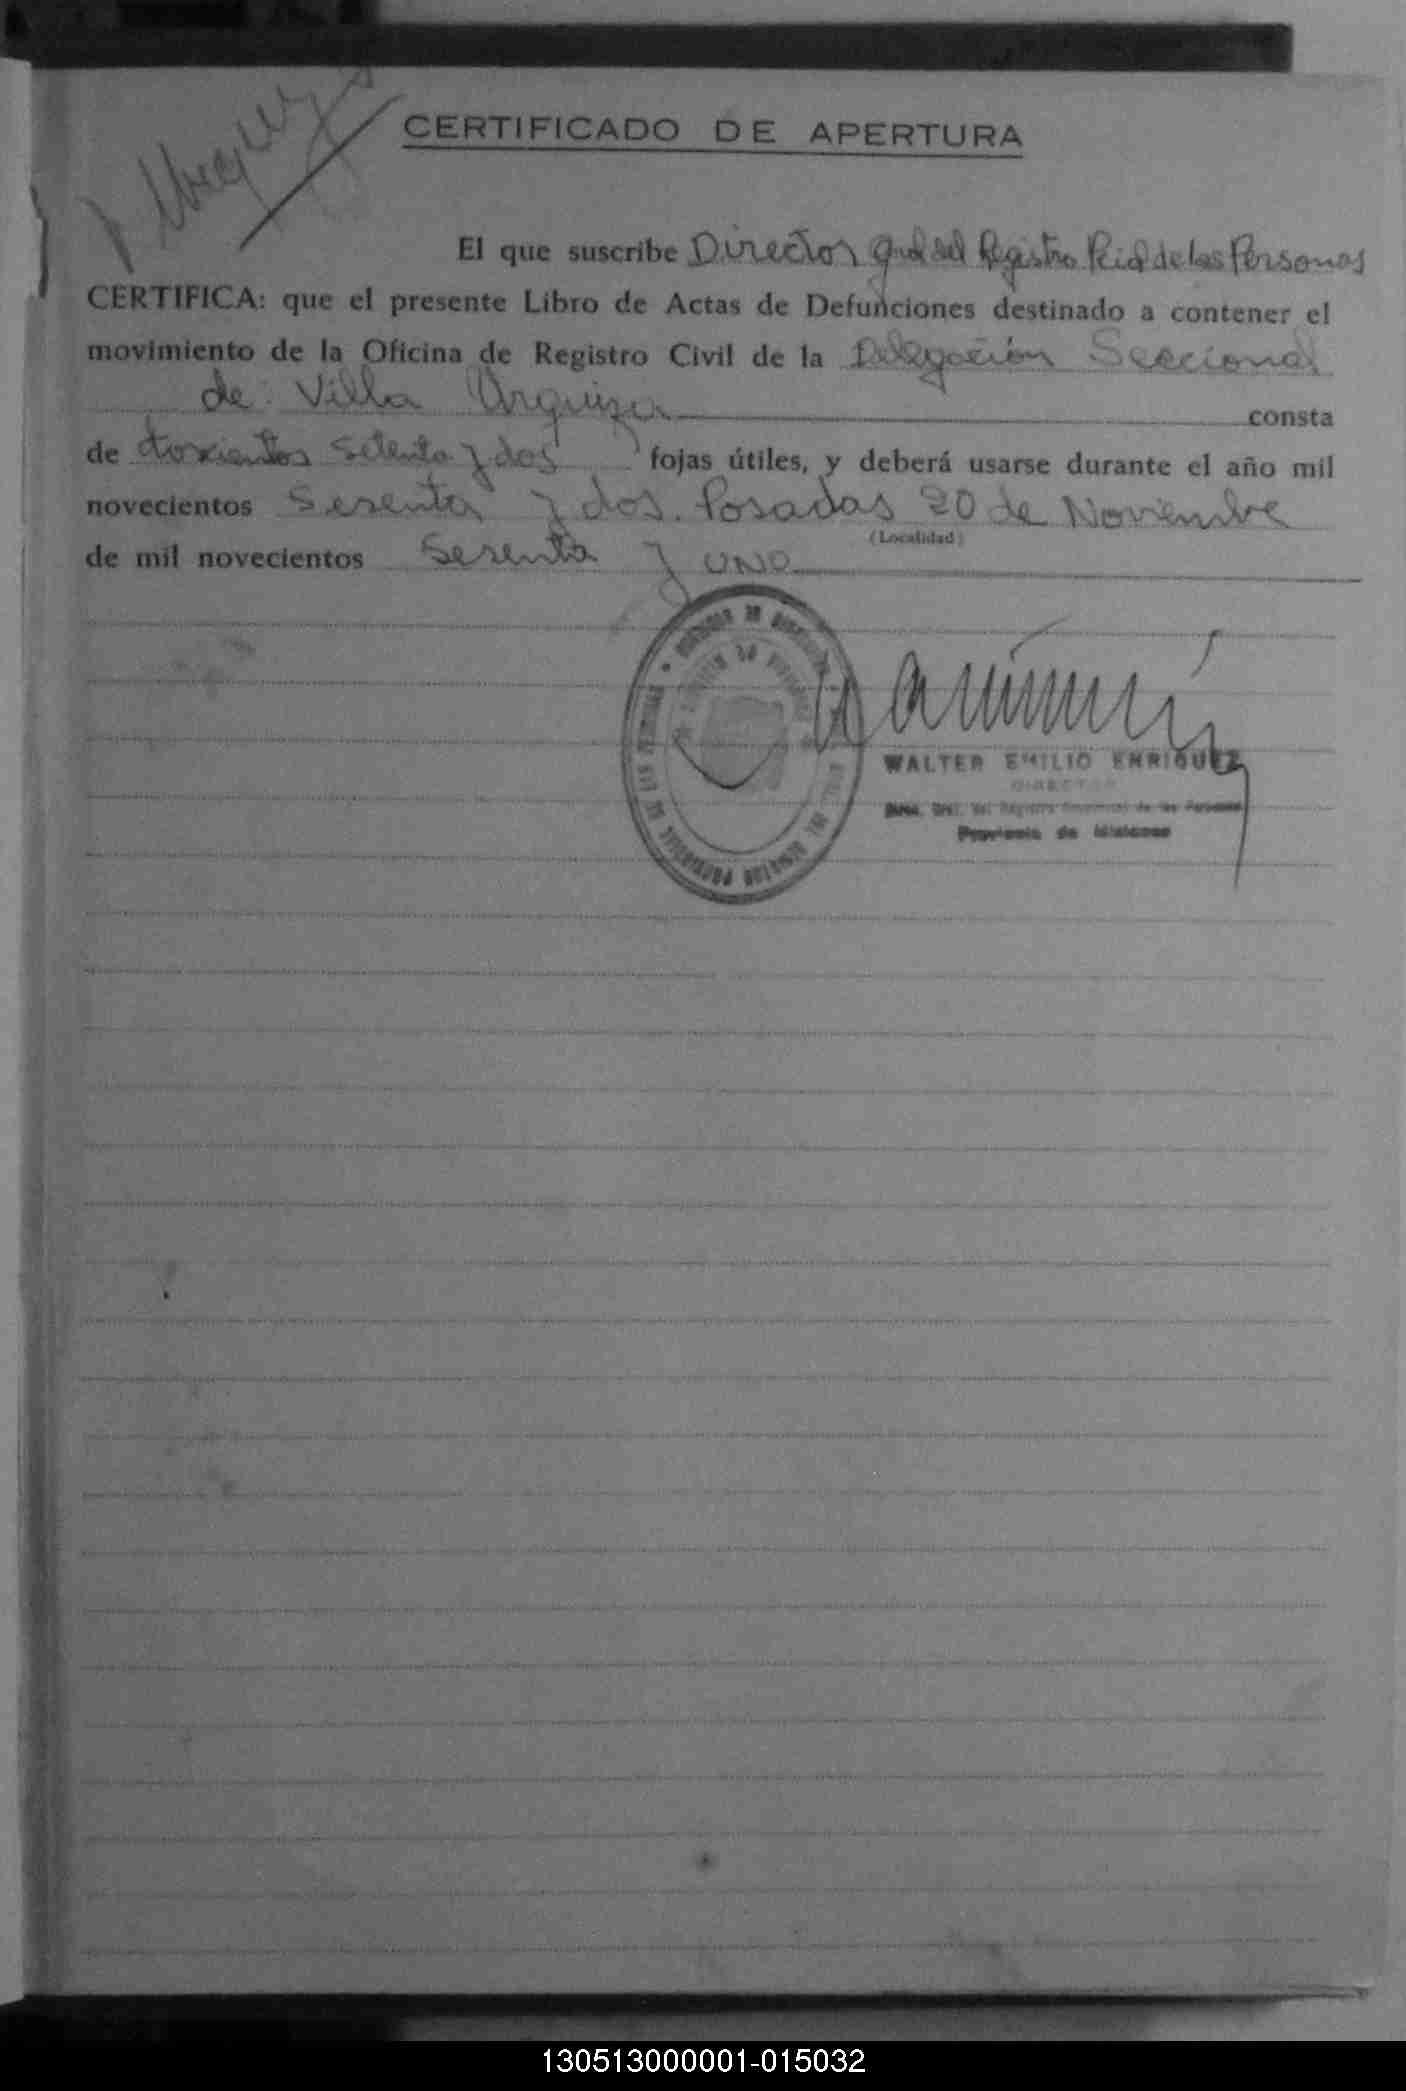 V. Urquiza
CERTIFICADO DE APERTURA
El que suscribe Director Gral del Registro Pcial de las Personas
CERTIFICA: que el presente Libro de Actas de Defunciones destinado a contener el
movimiento de la Oficina de Registro Civil de la Delegación Seccional
de: Villa Urquiza consta
de doscientos setenta y dos fojas útiles, y deberá usarse durante el año mil
novecientos Sesenta y dos. Posadas 20 de Noviembre
(Localidad)
de mil novecientos Sesenta y uno
WALTER EMILIO ENRIQUEZ
DIRECTOR
Direc. Gral. del Registro Provincial de las Personas
Provincia de Misiones
130513000001-015032